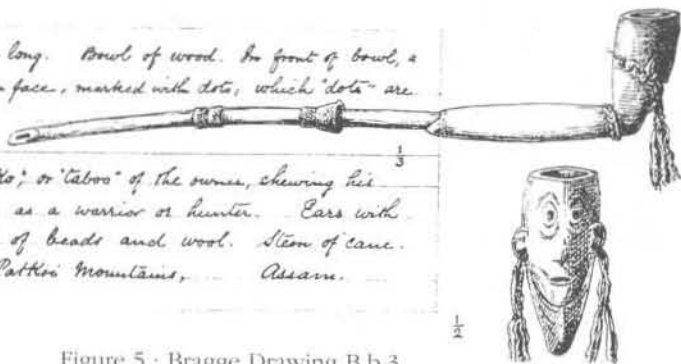 long. Bowl of wood. In front of bowl, a
face, marked with dots, which "dots" are
1/3
or "taboo" of the owner, shewing his
as a warrior or hunter. Ears with
of beads and wool. Stem of cane.
Patkoi Mountains, Assam.
1/2
Figure 5 : Bragge Drawing B.b.3